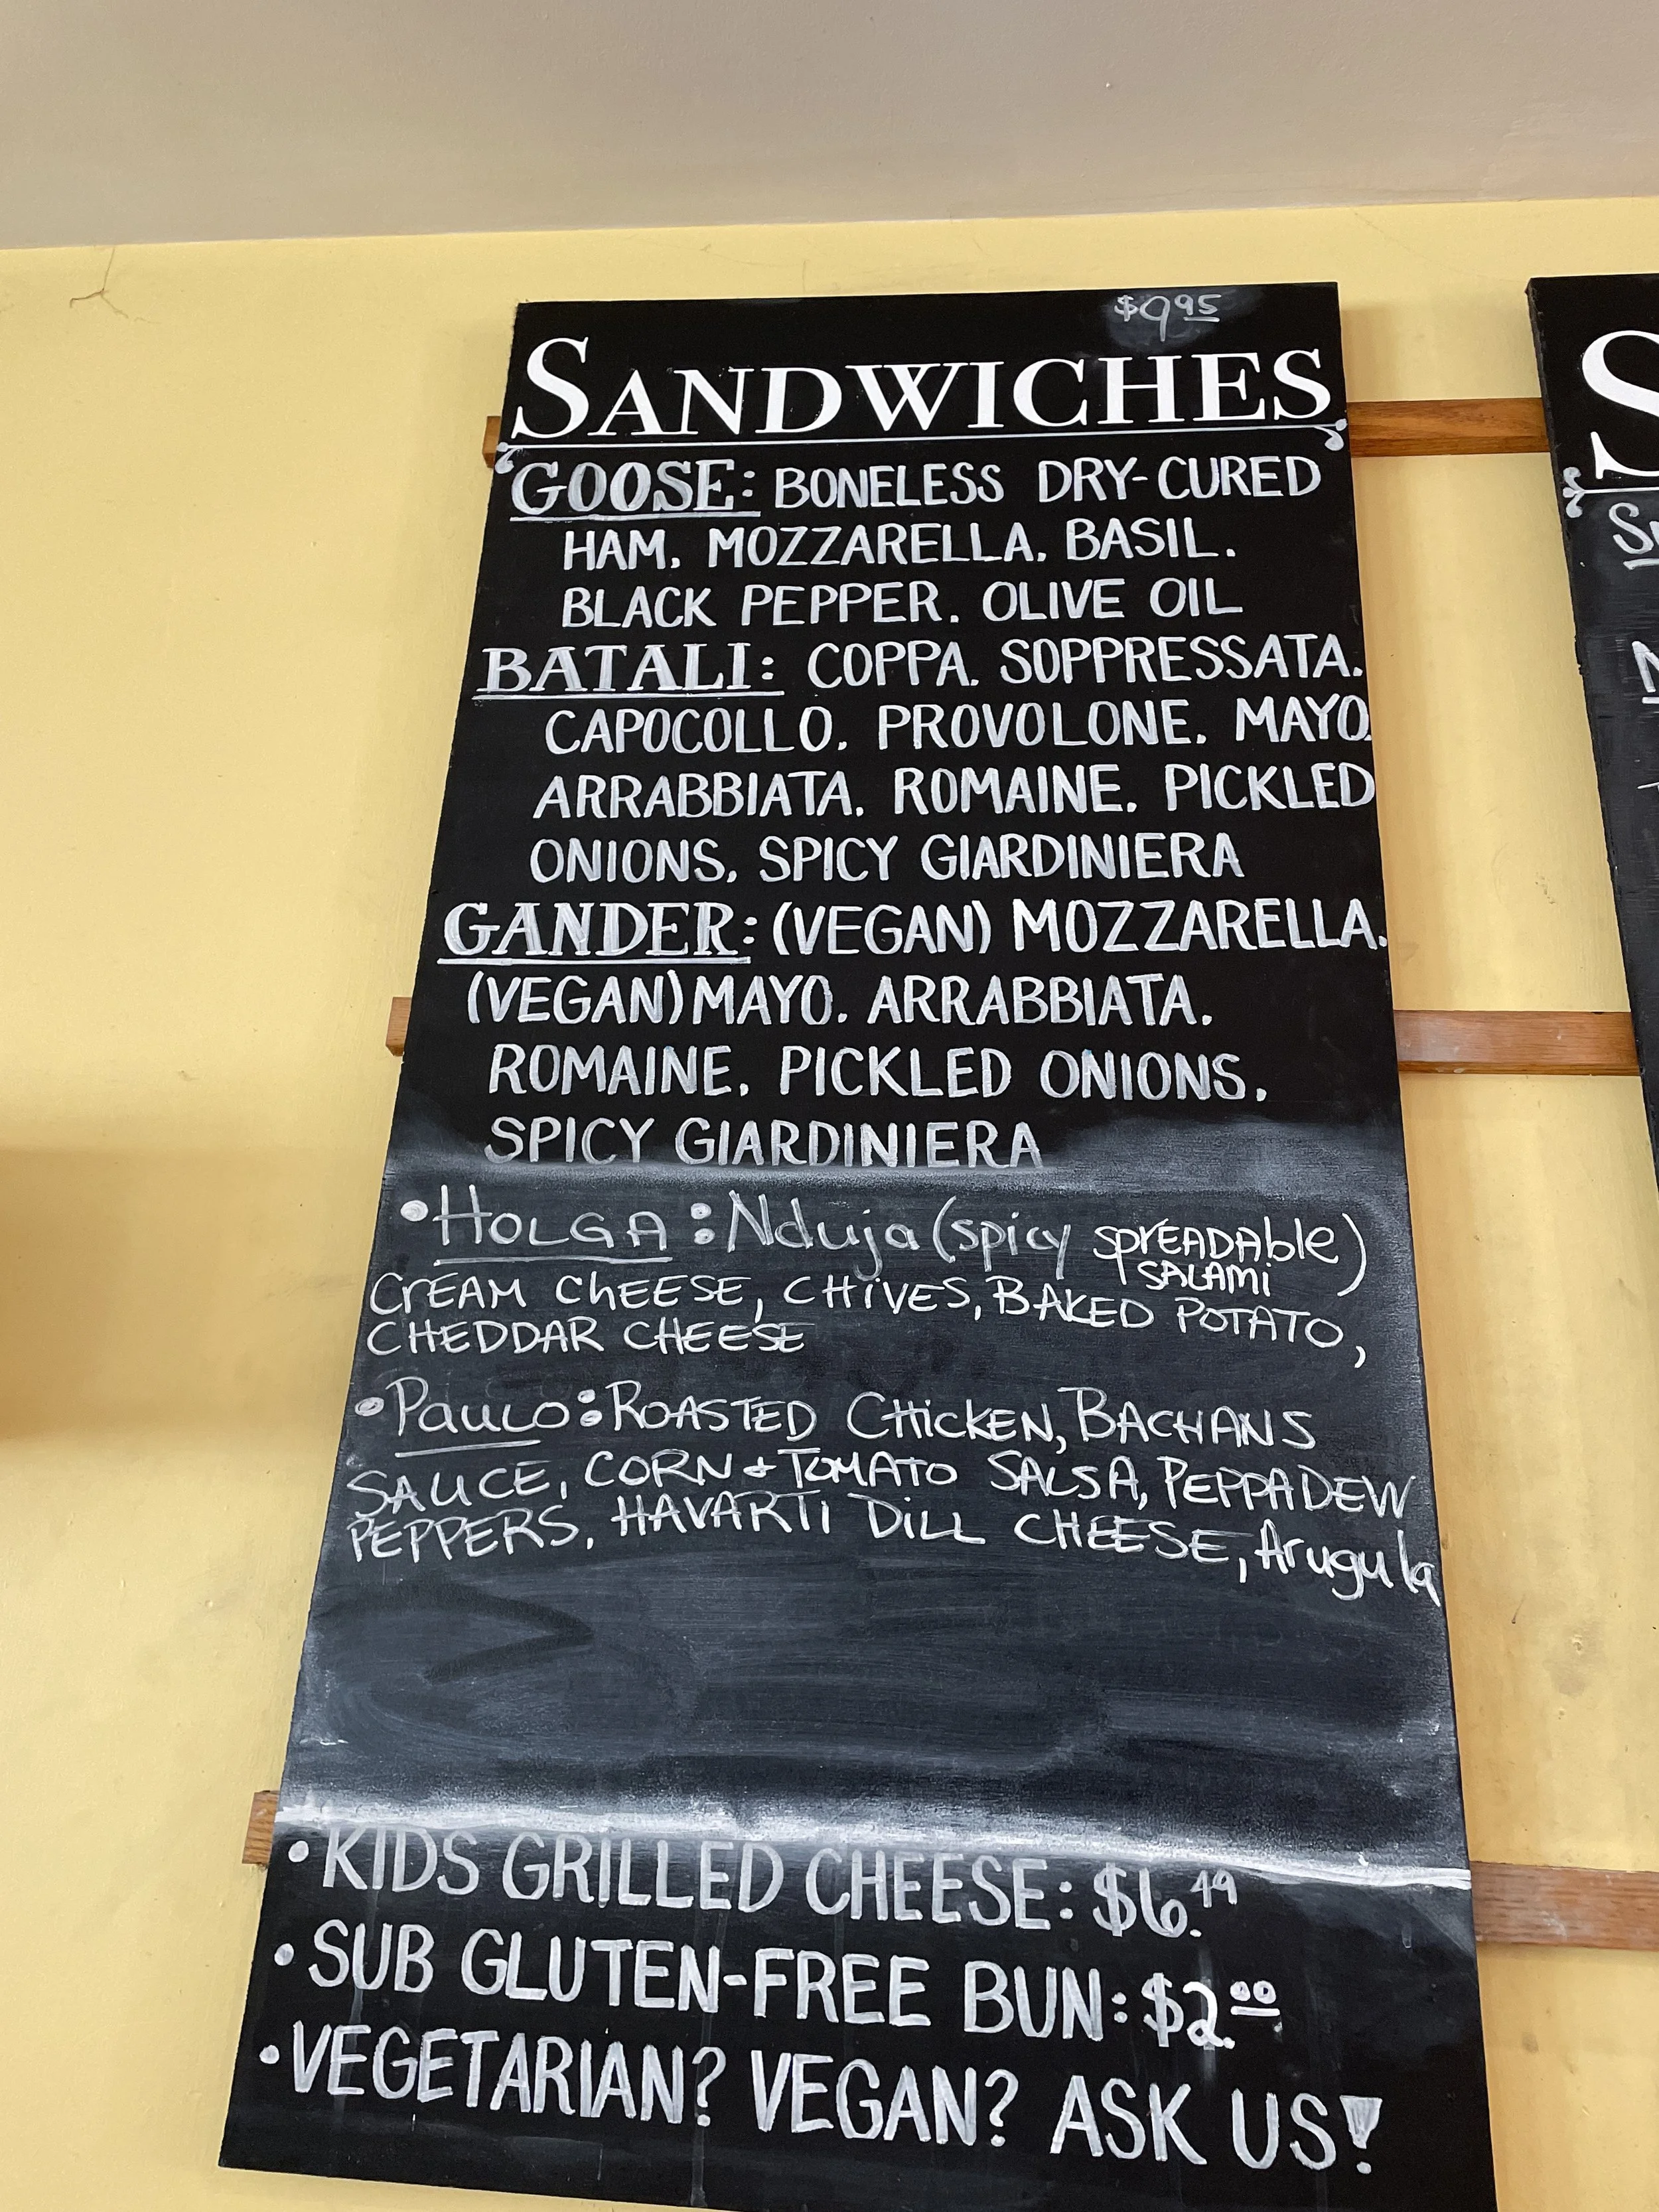 $9.95
SANDWICHES
GOOSE: BONELESS DRY-CURED
HAM, MOZZARELLA, BASIL.
BLACK PEPPER. OLIVE OIL
BATALI: COPPA. SOPPRESSATA.
CAPOCOLLO. PROVOLONE. MAYO.
ARRABBIATA. ROMAINE. PICKLED
ONIONS. SPICY GIARDINIERA
GANDER: (VEGAN) MOZZARELLA.
(VEGAN) MAYO. ARRABBIATA.
ROMAINE. PICKLED ONIONS.
SPICY GIARDINIERA
• HOLGA: Nduja (spicy sprEADAble)
SALAMI
CrEAM ChEESE, CHiVES, BAKED POTATO,
CHEDDAR CHEESE
• Paulo: ROASTED CHiCKEN, BACHANS
SAUCE, CORN + TOMATO SALSA, PEPPADEW
PEPPERS, HAVARTI DiLL CHEESE, Arugula
• KIDS GRILLED CHEESE: $6.49
• SUB GLUTEN-FREE BUN: $2.00
• VEGETARIAN? VEGAN? ASK US!